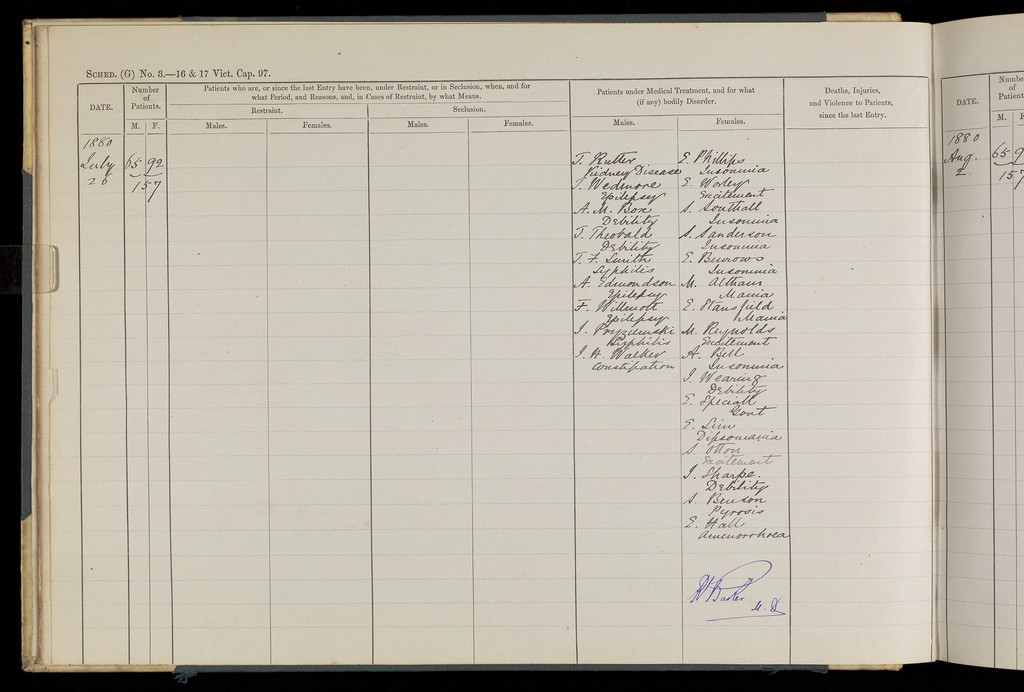 SCHED. (G) No. 3.—16 & 17 Vict. Cap. 97.
DATE.
Number
of
Patients.
M. F.
Patients who are, or since the last Entry have been, under Restraint, or in Seclusion, when, and for
what Period, and Reasons, and, in Cases of Restraint, by what Means.
Restraint.
Seclusion.
Males.
Females.
Males.
Females.
Patients under Medical Treatment, and for what
(if any) bodily Disorder.
Males.
Females.
Deaths, Injuries,
and Violence to Patients,
since the last Entry.
1880
July 65 92
26 157
T. Rutter
Kidney Disease
T. Wedmore
Epilepsy
A. M. Box
Debility
T. Theobald
Debility
T. F. Smith
Syphilis
A. Edmondson
Epilepsy
F. Willmott
Epilepsy
J. Pryziemski
Syphilis
J. H. Walker
Constipation
E. Phillips
Insomnia
E. Worley
Excitement
S. Southall
Insomnia
S. Sanderson
Insomnia
E. Burrows
Insomnia
M. Althaus
Mania
E. Stansfield
Mania
M. Reynolds
Excitement
A. Bell
Insomnia
J. Wearing
Debility
E. Speciall
Gout
E. Sim
Dipsomania
S. Otton
Excitement
J. Sharpe
Debility
S. Benson
Pyrosis
E. Hall
Amenorrhoea
M. D
DATE.
Numbe
of
Patient
M. F
1880
Aug. 65 9
2 15